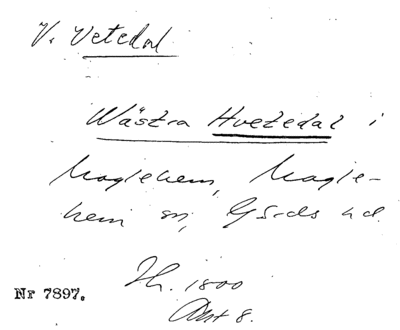 V. Vetedal
Wästra Hvetedal i
Maglehem, Magle-
hem sn, Gärds hd.
Th. 1800
Akt 8.
Nr 7897.